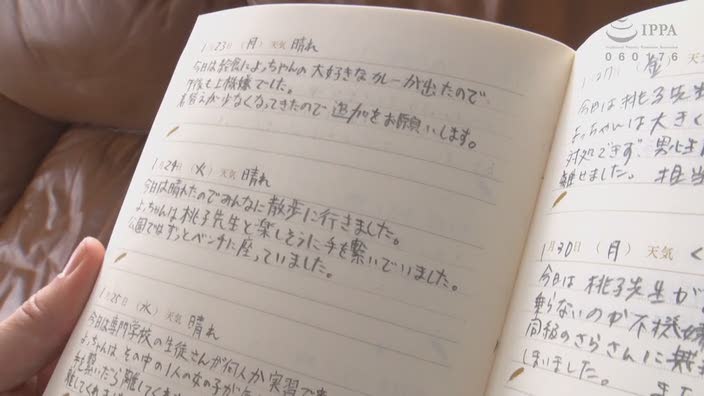 1月23日（月）天気 晴れ
今日は給食によっちゃんの大好きなカレーが出たので、
午後も上機嫌でした。
着替えが少なくなってきたので追加をお願いします。
1月24日（火）天気 晴れ
今日は晴れたのでみんなに散歩に行きました。
よっちゃんは桃子先生と楽しそうに手を繋いでいました。
公園ではずっとベンチに座っていました。
1月25日（水）天気 晴れ
今日は専門学校の生徒さんが何人か実習で
よっちゃんは、その中の1人の女の子が
手を繋いだら離してく
離してくれ
1月27日（金）天気
今日は桃子先生
よっちゃんは大きく
対処できず、男性
離せました。担当
1月30日（月）天気 く
今日は桃子先生が
乗らないのか不機嫌
同板のさらさんに
しまいました。また
IPPA
060176